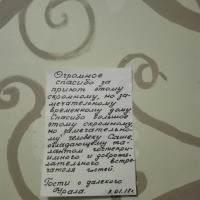 Огромное
спасибо за
приют этому
скромному, но за-
мечательному
временному дому
Спасибо большое
этому скромному,
но замечательно-
му человеку Саше,
обладающему та-
лантом гостепри-
имного и доброже-
лательного встре-
чателя гостей.
Гости с далекого
Урала. 9.01.18г